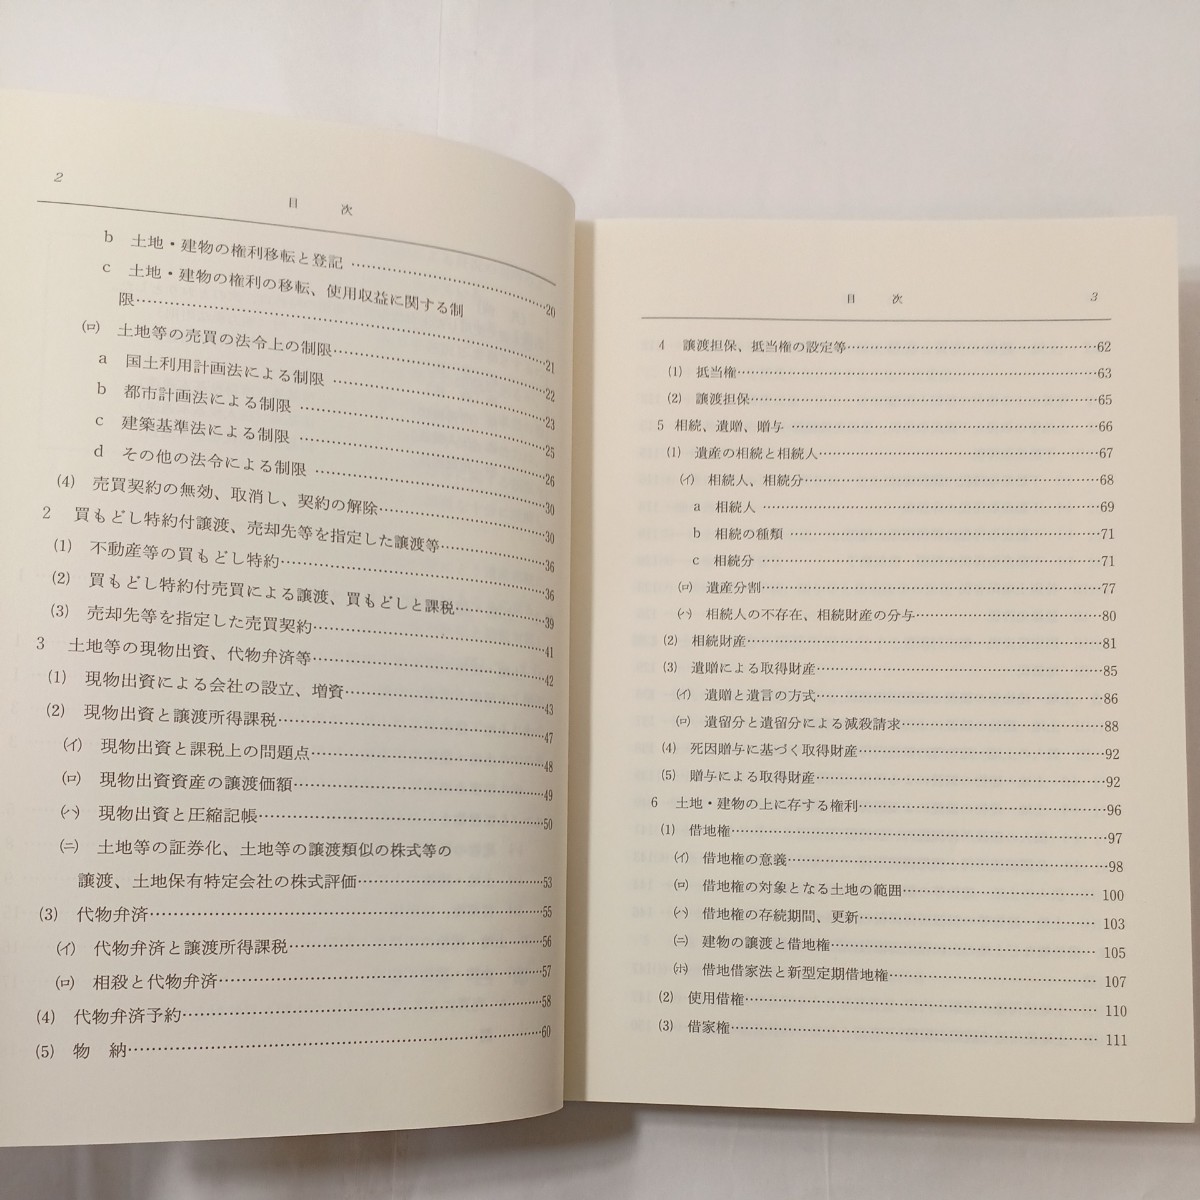 2
目 次
b 土地・建物の権利移転と登記 ……20
c 土地・建物の権利の移転、使用収益に関する制
限……21
(ロ) 土地等の売買の法令上の制限……22
a 国土利用計画法による制限 ……23
b 都市計画法による制限 ……25
c 建築基準法による制限 ……26
d その他の法令による制限 ……30
(4) 売買契約の無効、取消し、契約の解除……30
2 買もどし特約付譲渡、売却先等を指定した譲渡等……36
(1) 不動産等の買もどし特約……36
(2) 買もどし特約付売買による譲渡、買もどしと課税……39
(3) 売却先等を指定した売買契約……41
3 土地等の現物出資、代物弁済等……42
(1) 現物出資による会社の設立、増資……43
(2) 現物出資と譲渡所得課税……47
(イ) 現物出資と課税上の問題点……48
(ロ) 現物出資資産の譲渡価額……49
(ハ) 現物出資と圧縮記帳……50
(ニ) 土地等の証券化、土地等の譲渡類似の株式等の
譲渡、土地保有特定会社の株式評価……53
(3) 代物弁済……55
(イ) 代物弁済と譲渡所得課税……56
(ロ) 相殺と代物弁済……57
(4) 代物弁済予約……58
(5) 物 納……60
目 次
3
4 譲渡担保、抵当権の設定等……62
(1) 抵当権……63
(2) 譲渡担保……65
5 相続、遺贈、贈与 ……66
(1) 遺産の相続と相続人……67
(イ) 相続人、相続分……68
a 相続人 ……69
b 相続の種類 ……71
c 相続分 ……71
(ロ) 遺産分割……77
(ハ) 相続人の不存在、相続財産の分与……80
(2) 相続財産……81
(3) 遺贈による取得財産……85
(イ) 遺贈と遺言の方式……86
(ロ) 遺留分と遺留分による減殺請求……88
(4) 死因贈与に基づく取得財産……92
(5) 贈与による取得財産……92
6 土地・建物の上に存する権利……96
(1) 借地権……97
(イ) 借地権の意義……98
(ロ) 借地権の対象となる土地の範囲……100
(ハ) 借地権の存続期間、更新……103
(ニ) 建物の譲渡と借地権……105
(ホ) 借地借家法と新型定期借地権……107
(2) 使用借権……110
(3) 借家権……111